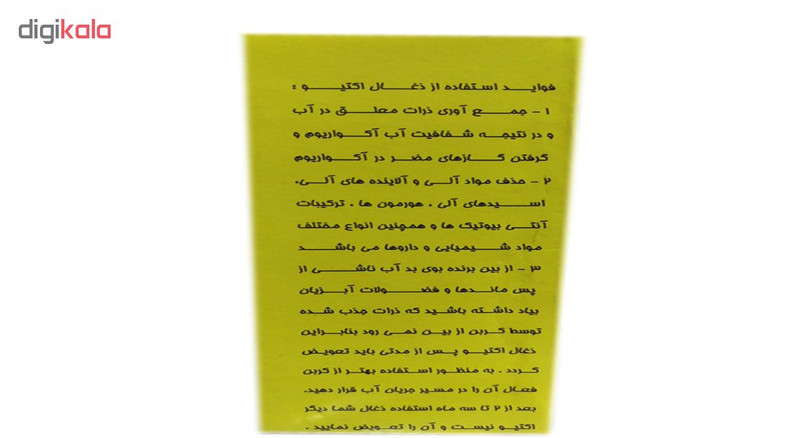 digikala
فواید استفاده از ذغال اکتیو :
۱ - جمع آوری ذرات معلق در آب
و در نتیجه شفافیت آب آکواریوم و
گرفتن گازهای مضر در آکواریوم
۲ - حذف مواد آلی و آلاینده های آلی.
اسیدهای آلی . هورمون ها . ترکیبات
آنتی بیوتیک ها و همچنین انواع مختلف
مواد شیمیایی و داروها می باشد
۳ - از بین برنده بوی بد آب ناشی از
پس ماندها و فضولات آبزیان
بیاد داشته باشید که ذرات جذب شده
توسط کربن از بین نمی رود بنابراین
ذغال اکتیو پس از مدتی باید تعویض
گردد . به منظور استفاده بهتر از کربن
فعال آن را در مسیر جریان آب قرار دهید.
بعد از ۲ تا سه ماه استفاده ذغال شما دیگر
اکتیو نیست و آن را تعویض نمایید .